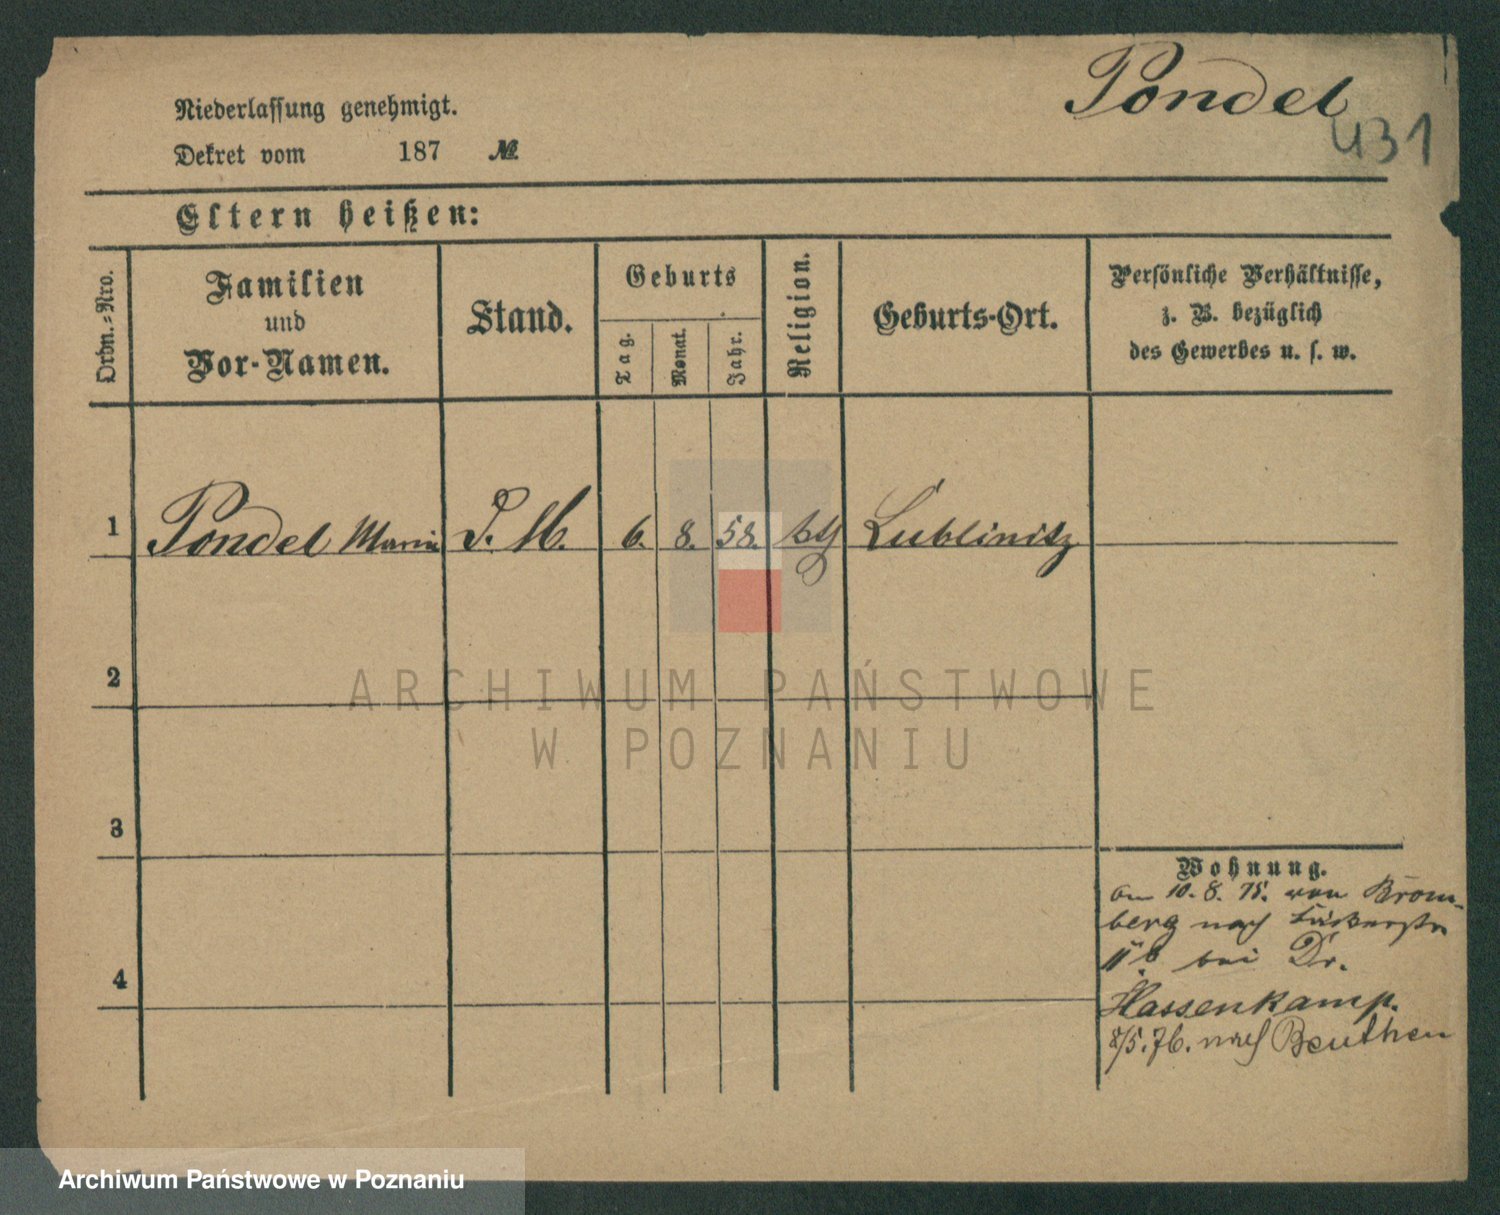 Pondel
431
Niederlassung genehmigt.
Dekret vom 187 №
Eltern heißen:
Ordn.=Nro.
Familien
und
Vor-Namen.
Stand.
Geburts
Tag.
Monat.
Jahr.
Religion.
Geburts-Ort.
Persönliche Verhältnisse,
z. B. bezüglich
des Gewerbes u. s. w.
1 Pondel Maria D. M. 6. 8. 58. kth Lublinitz
2
ARCHIWUM PAŃSTWOWE
W POZNANIU
3
Wohnung.
am 10. 8. 75. von Brom-
berg nach
bei Dr.
4
Hassenkamp.
8/5. 76. nach Beuthen
Archiwum Państwowe w Poznaniu